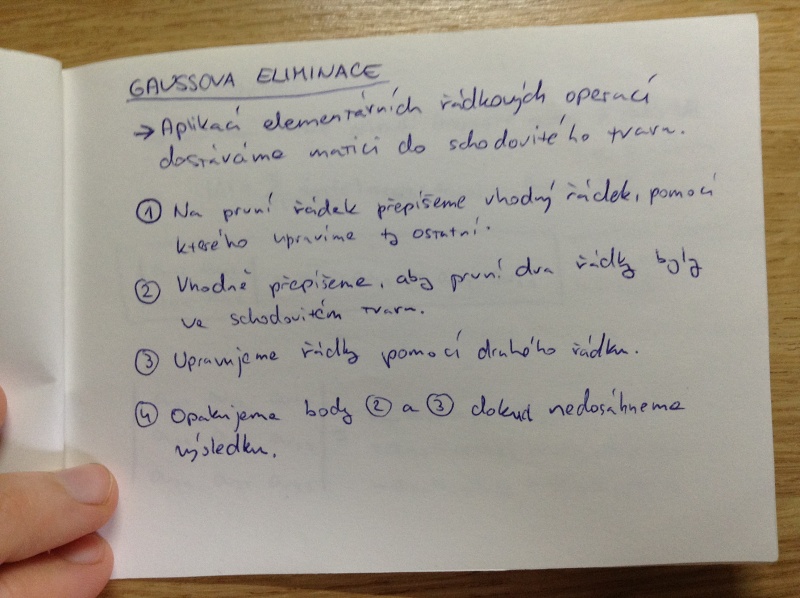 GAUSSOVA ELIMINACE
→ Aplikací elementárních řádkových operací
dostáváme matici do schodovitého tvaru.
① Na první řádek přepíšeme vhodný řádek, pomocí
kterého upravíme ty ostatní.
② Vhodně přepíšeme, aby první dva řádky byly
ve schodovitém tvaru.
③ Upravujeme řádky pomocí druhého řádku.
④ Opakujeme body ② a ③ dokud nedosáhneme
výsledku.